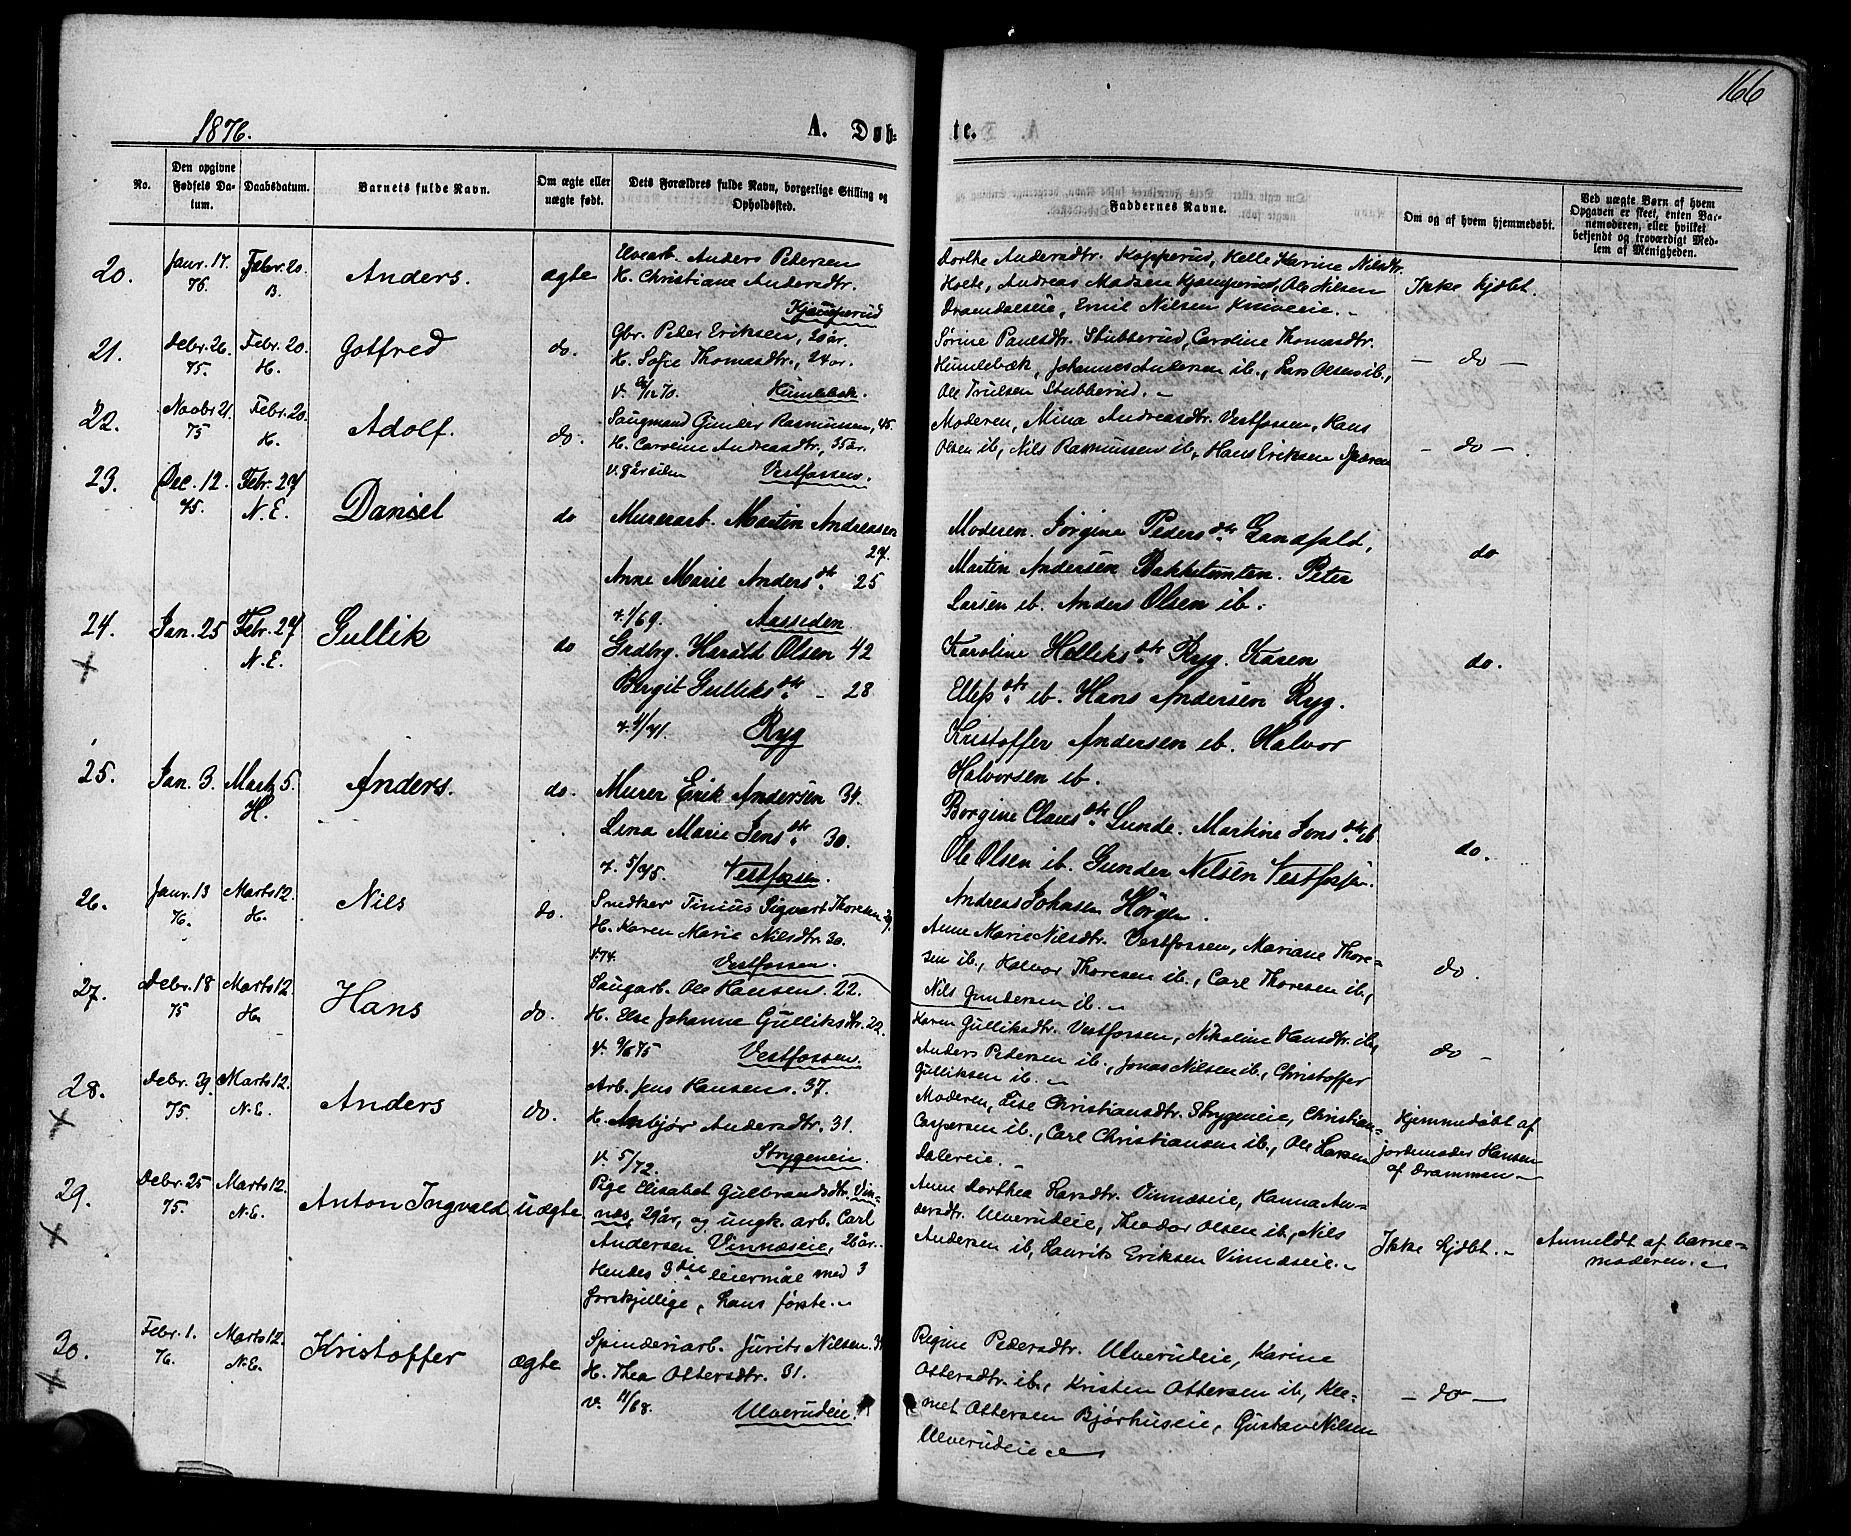 166
1876.
A. Døb-
te.
No.
Den opgivne Fødsels Da-tum.
Daabsdatum.
Barnets fulde Navn.
Om ægte eller uægte født.
Dets Forældres fulde Navn, borgerlige Stilling og Opholdssted.
Faddernes Navne.
Om og af hvem hjemmedøbt.
Ved uægte Børn af hvem Opgaven er skeet, enten Bar-nemoderen, eller hvilket bekjendt og troværdigt Med-lem af Menigheden.
20.
Janr. 17. 76.
Febr. 20. B.
Anders.
ægte
Anders Pedersen
H. Christiane Andersdtr.
Kjæmperud
Dorthe Andersdtr. Kopperud, Helle Karine Nilsdtr.
Holte, Andreas Madsen Kjæmperud, Ole Nilsen
Dramdalseie, Emil Nilsen Kniveeie.
Ikke hjdbt.
21.
Debr. 26. 75.
Febr. 20. H.
Gotfred
do.
Gbr. Peder Eriksen, 20 år.
H. Sofie Thomasdtr., 24 år.
v. /12 70. Humlebæk.
Sørine Paulsdtr. Stubberud, Caroline Thomasdtr.
Humlebæk, Johannes Andersen ib., Lars Olsen ib.,
Ole Trulsen Stubberud.
- do -
22.
Novbr 21. 75
Febr. 20. H.
Adolf.
do.
Saugmand Gunder Rasmussen, 45.
H. Caroline Andreasdtr., 35 år.
v. Vestfossen.
Moderen, Mina Andreasdtr. Vestfossen, Hans
Olsen ib, Nils Rasmussen ib., Hans Eriksen
- do -.
23.
Dec. 12. 75.
Febr. 27 N.E.
Daniel
do
Murerarb. Martin Andreasen
27.
Anne Marie Andersdtr. 25
v. 1/69. Aassiden.
Moderen. Jørgine Pedersdtr.
Martin Andersen Bakketomten. Peter
Larsen ib. Anders Olsen ib.
do
24.
Jan. 25
Febr. 27 N.E.
Gullik
do
Grdbrg. Harald Olsen 42
Bergit Gulliksdtr. - 28
v. 4/71. Ryg
Karoline Helliksdtr. Ryg. Karen
Ellefsdtr. ib. Hans Andersen Ryg.
Kristoffer Andersen ib. Halvor
Halvorsen ib.
do.
25.
Jan. 3.
Marts 5. H.
Anders.
do.
Murer Erik Andersen 34.
Lina Marie Jensdtr. 30.
v. 5/75. Vestfossen.
Borgine Clausdtr. Lunde. Martine Jonsdtr. ib.
Ole Olsen ib. Gunder Nilsen Vestfossen.
Andreas Johnsen Hørgen.
do.
26.
Janr. 13 76.
Marts 12. H.
Nils
do.
Snedker Tinius Sigvart Thoresen 29.
H. Karen Marie Nilsdtr. 30.
v. 74. Vestfossen.
Anne Marie Nilsdtr. Vestfossen, Mariane Thore-
sen ib., Halvor Thoresen ib., Carl Thoresen ib.,
Nils Gundersen ib.
do.
27.
Debr. 18 75
Marts 12. H.
Hans
do.
Saugarb. Ole Hansen. 22.
H. Else Johanne Gulliksdtr. 22.
v. 9/6 75 Vestfossen
Karen Gulliksdtr. Vestfossen, Nikoline Hansdtr. ib,
Anders Pedersen ib., Jonas Nilsen ib., Christoffer
Gulliksen ib.
do -
28.
Debr. 29. 75.
Marts 12. N.E.
Anders
do.
Arb. Jens Hansen. 37.
H. Anbjør Andersdtr. 31.
v. 5/72. Strygeneie.
Moderen, Lise Christiansdtr. Strygeneie, Christian
Caspersen ib., Carl Christiansen ib., Ole Larsen
Dalereie.
Hjemmedøbt af
jordemoder Hansen
af Drammen
29.
Debr. 25 75.
Marts 12. N.E.
Anton Ingvald
uægte
Pige Elisabet Gulbrandsdtr. Vin-
næs, 29 år, og ungk. arb. Carl
Andersen Vinnæseie, 26 år.
Hendes 3die leiermål med 3
forskjellige, hans første.
Anne Dorthea Larsdtr. Vinnæseie, Hanna An-
dersdtr. Ulverudeie, Theodor Olsen ib., Nils
Andersen ib, Laurits Eriksen Vinnæseie.
Ikke hjdbt.
Anmeldt af barne-
moderen.
30.
Febr. 1. 76.
Marts 12. N.E.
Kristoffer
ægte
Spinderiarb. Jurits Nilsen.
H. Thea Ottersdtr. 31.
v. 11/68. Ulverudeie.
Regine Pedersdtr. Ulverudeie, Karine
Ottersdtr. ib., Kristen Ottersen ib, Kle-
met Ottersen Bjørhuseie, Gustav Nilsen
Ulverudeie
- do -